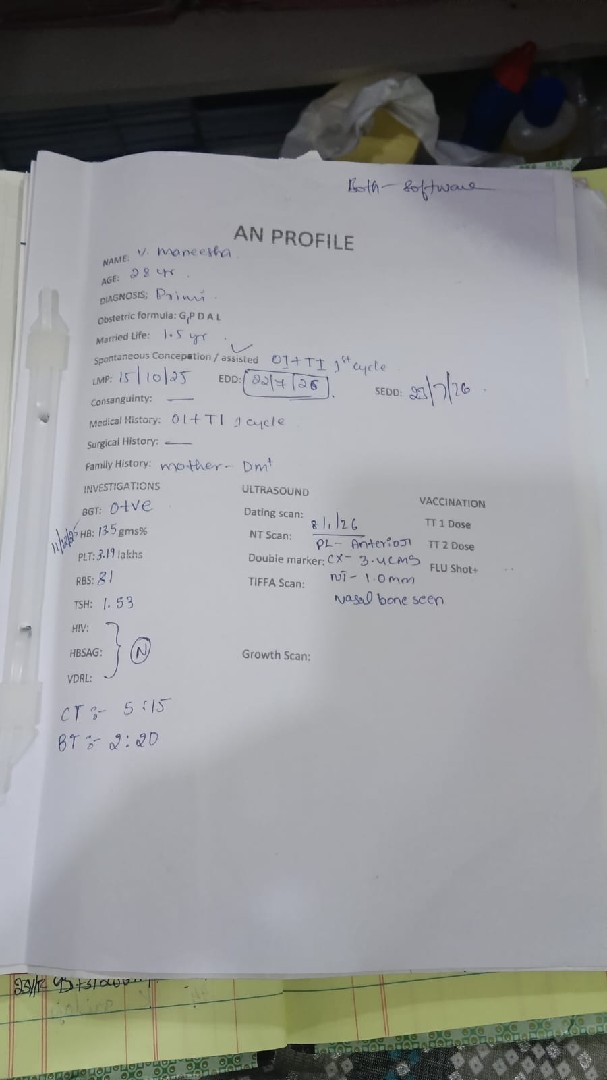 Both - Software
AN PROFILE
NAME: V. Maneesha.
AGE: 28 yr.
DIAGNOSIS: Primi.
Obstetric formula: G₁P D A L
Married Life: 1.5 yr.
Spontaneous Concepation / assisted ✓ OI + TI 1st cycle
LMP: 15/10/25 EDD: 22/7/26. SEDD: 23/7/26.
Consanguinty: —
Medical History: OI + TI 1 cycle
Surgical History: —
Family History: mother - Dm+
INVESTIGATIONS ULTRASOUND VACCINATION
BGT: O+ve Dating scan: TT 1 Dose
HB: 13.5 gms% NT Scan: 8/1/26 TT 2 Dose
PL - Anterior
PLT: 3.19 lakhs Double marker: CX - 3.4 cms FLU Shot+
RBS: 81 TIFFA Scan: NT - 1.0 mm
Nasal bone seen
TSH: 1.53
HIV:
HBSAG: } N
VDRL:
Growth Scan:
CT :- 5:15
BT :- 2:20